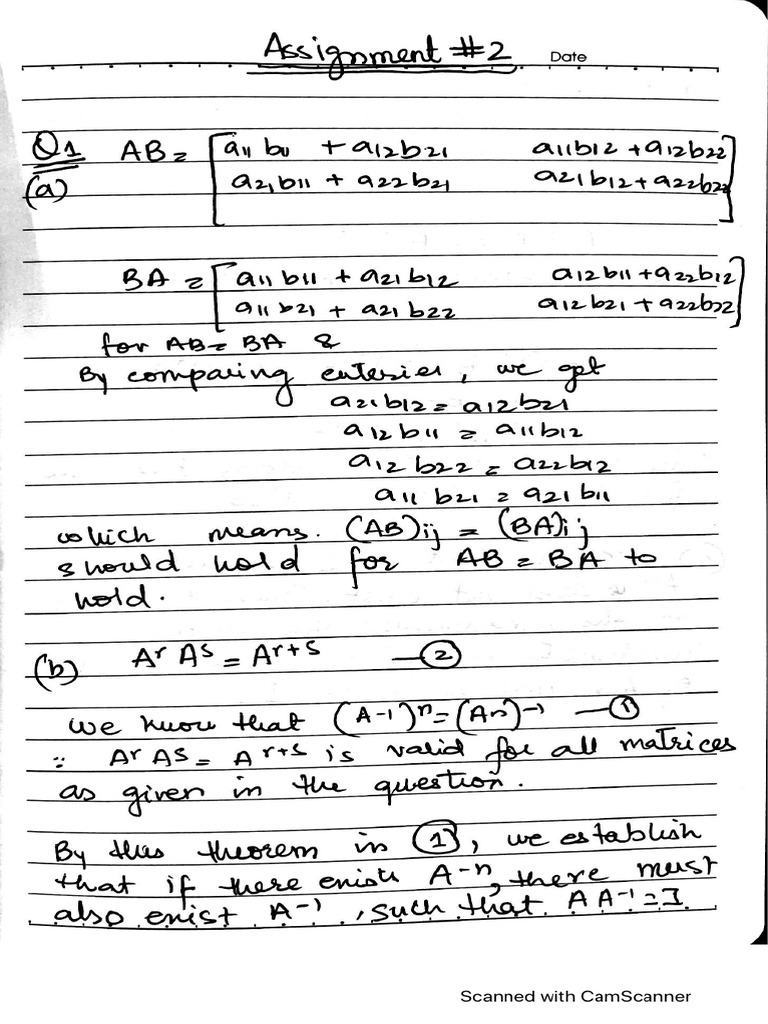 Assignment #2 Date
Q1 AB = [a11 b11 + a12b21 a11b12 + a12b22]
(a) a21b11 + a22b21 a21b12 + a22b22
BA = [a11b11 + a21b12 a12b11 + a22b12]
a11b21 + a21b22 a12b21 + a22b22
for AB = BA &
By comparing enteries, we get
a21b12 = a12b21
a12b11 = a11b12
a12b22 = a22b12
a11b21 = a21b11
which means. (AB)ij = (BA)ij
should hold for AB = BA to
hold.
(b) A^r A^s = A^r+s — ②
we know that (A^-1)^n = (A^n)^-1 — ①
∵ A^r A^s = A^r+s is valid for all matrices
as given in the question.
By this theorem in ①, we establish
that if there exists A^-n, there must
also exist A^-1, such that A A^-1 = I
Scanned with CamScanner